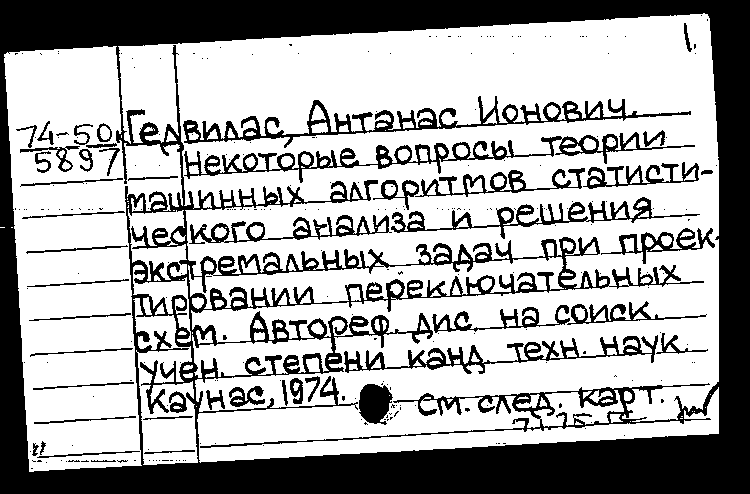 1.
74-50к
5897
Гедвилас, Антанас Ионович.
Некоторые вопросы теории
машинных алгоритмов статисти-
ческого анализа и решения
экстремальных задач при проек-
тировании переключательных
схем. Автореф. дис. на соиск.
учен. степени канд. техн. наук.
Каунас, 1974.
см. след. карт.